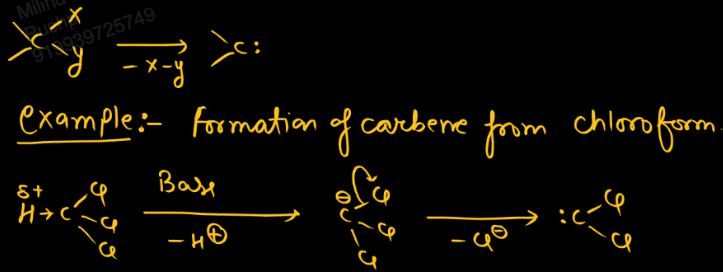 Milind
Pushp
919939725749
>C<x y → -x-y >C:
Example:- formation of carbene from chloroform.
δ+ H→C Cl Cl Cl Base → -H⊕ ⊖C Cl Cl Cl → -Cl⊖ :C Cl Cl